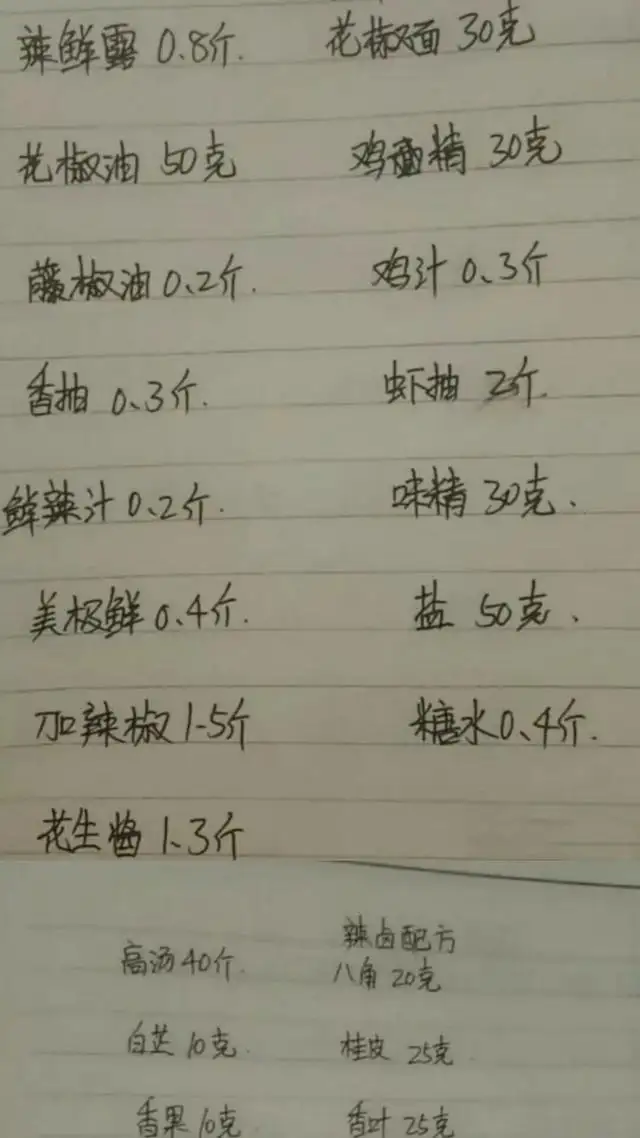 辣鲜露 0.8斤. 花椒面 30克
花椒油 50克 鸡精 30克
藤椒油 0.2斤. 鸡汁 0.3斤
香抽 0.3斤. 虾抽 2斤.
鲜辣汁 0.2斤. 味精 30克.
美极鲜 0.4斤. 盐 50克、
加辣椒 1-5斤 糖水 0.4斤.
花生酱 1.3斤
辣卤配方
高汤 40斤. 八角 20克
白芷 10克. 桂皮 25克
香果 10克 香叶 25克